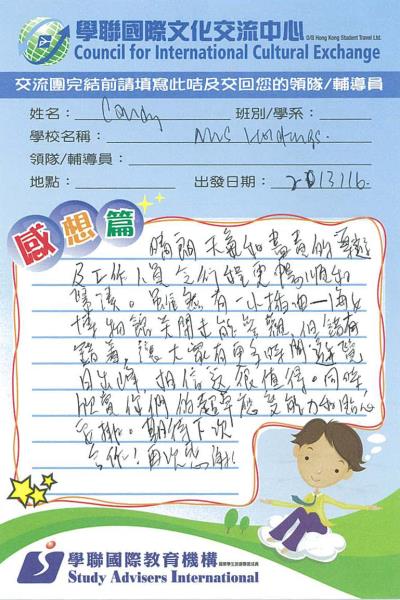 學聯國際文化交流中心 O/B Hong Kong Student Travel Ltd.
Council for International Cultural Exchange
交流團完結前請填寫此咭及交回您的領隊/輔導員
姓名： Candy 班別/學系：
學校名稱： NWS Holdings.
領隊/輔導員：
地點： 出發日期： 2013116.
感想篇
晴朗天氣和盡責的
及工作人員令行程更暢順和
難忘。雖然有一小插曲—海
博物館關閉未能參觀，但錯有
錯着，讓大家有更多時間遊覽
日出峰，相信是很值得。同時
欣賞你們的超卓應變能力和貼心
安排。期待下次
合作！再次感謝！
學聯國際教育機構
Study Advisers International